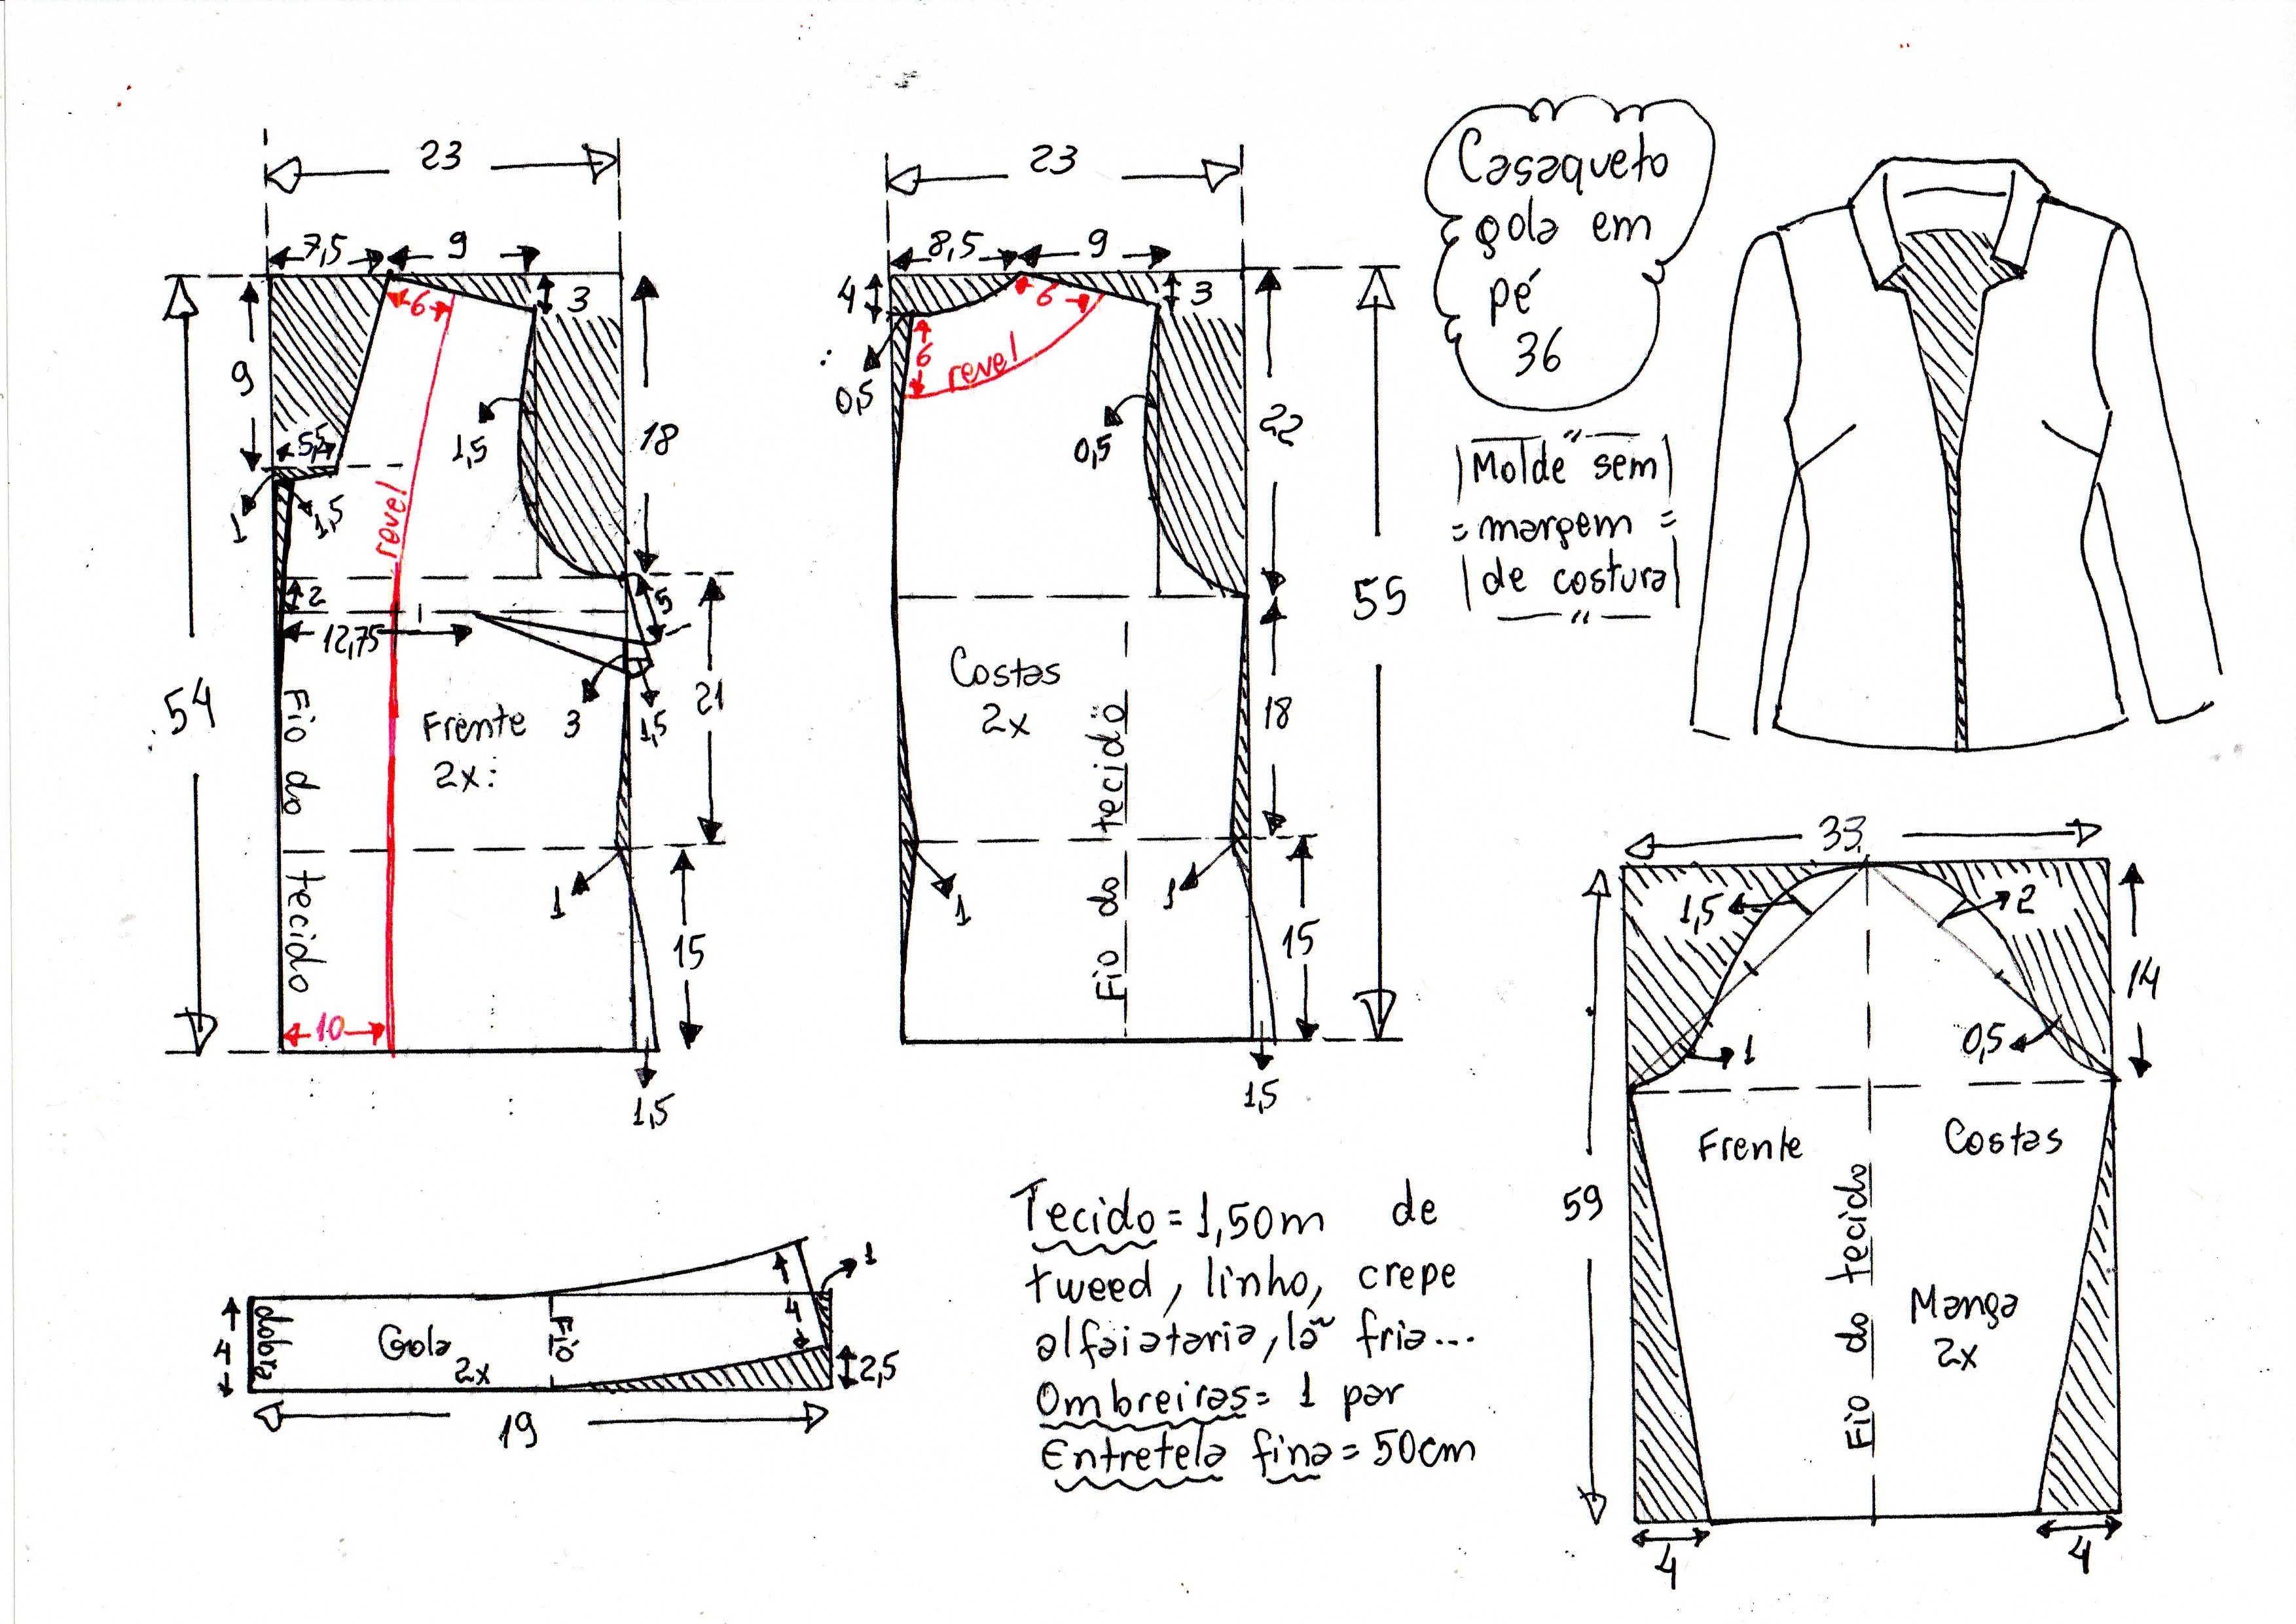 23
7,5
9
3
6
9
5,5
1
1,5
1,5
18
revel
2
12,75
5
3
1,5
21
54
Fio do tecido
Frente
2x
1
15
10
1,5
23
8,5
9
4
3
6
6
revel
0,5
0,5
22
55
Costas
2x
Fio do tecido
18
1
1
15
1,5
Casaqueto
gola em
pé
36
Molde sem
margem
de costura
33
1,5
2
14
1
0,5
59
Frente
Costas
Fio do tecido
Manga
2x
4
4
4
dobra
Gola
2x
Fio
4
1
2,5
19
Tecido = 1,50m de
tweed, linho, crepe
alfaiataria, lã fria...
Ombreiras = 1 par
Entretela fina = 50cm